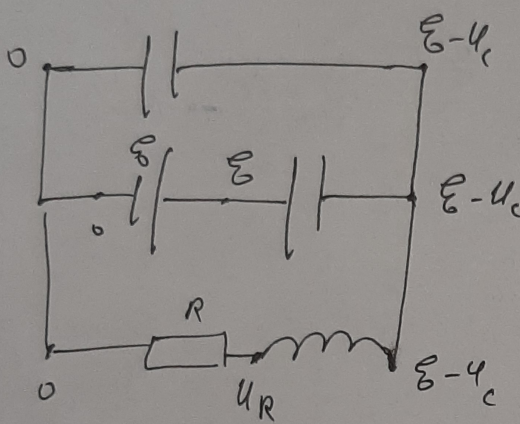 0
ℰ-U_c
ℰ
ℰ
0
ℰ-U_c
R
0
U_R
ℰ-U_c